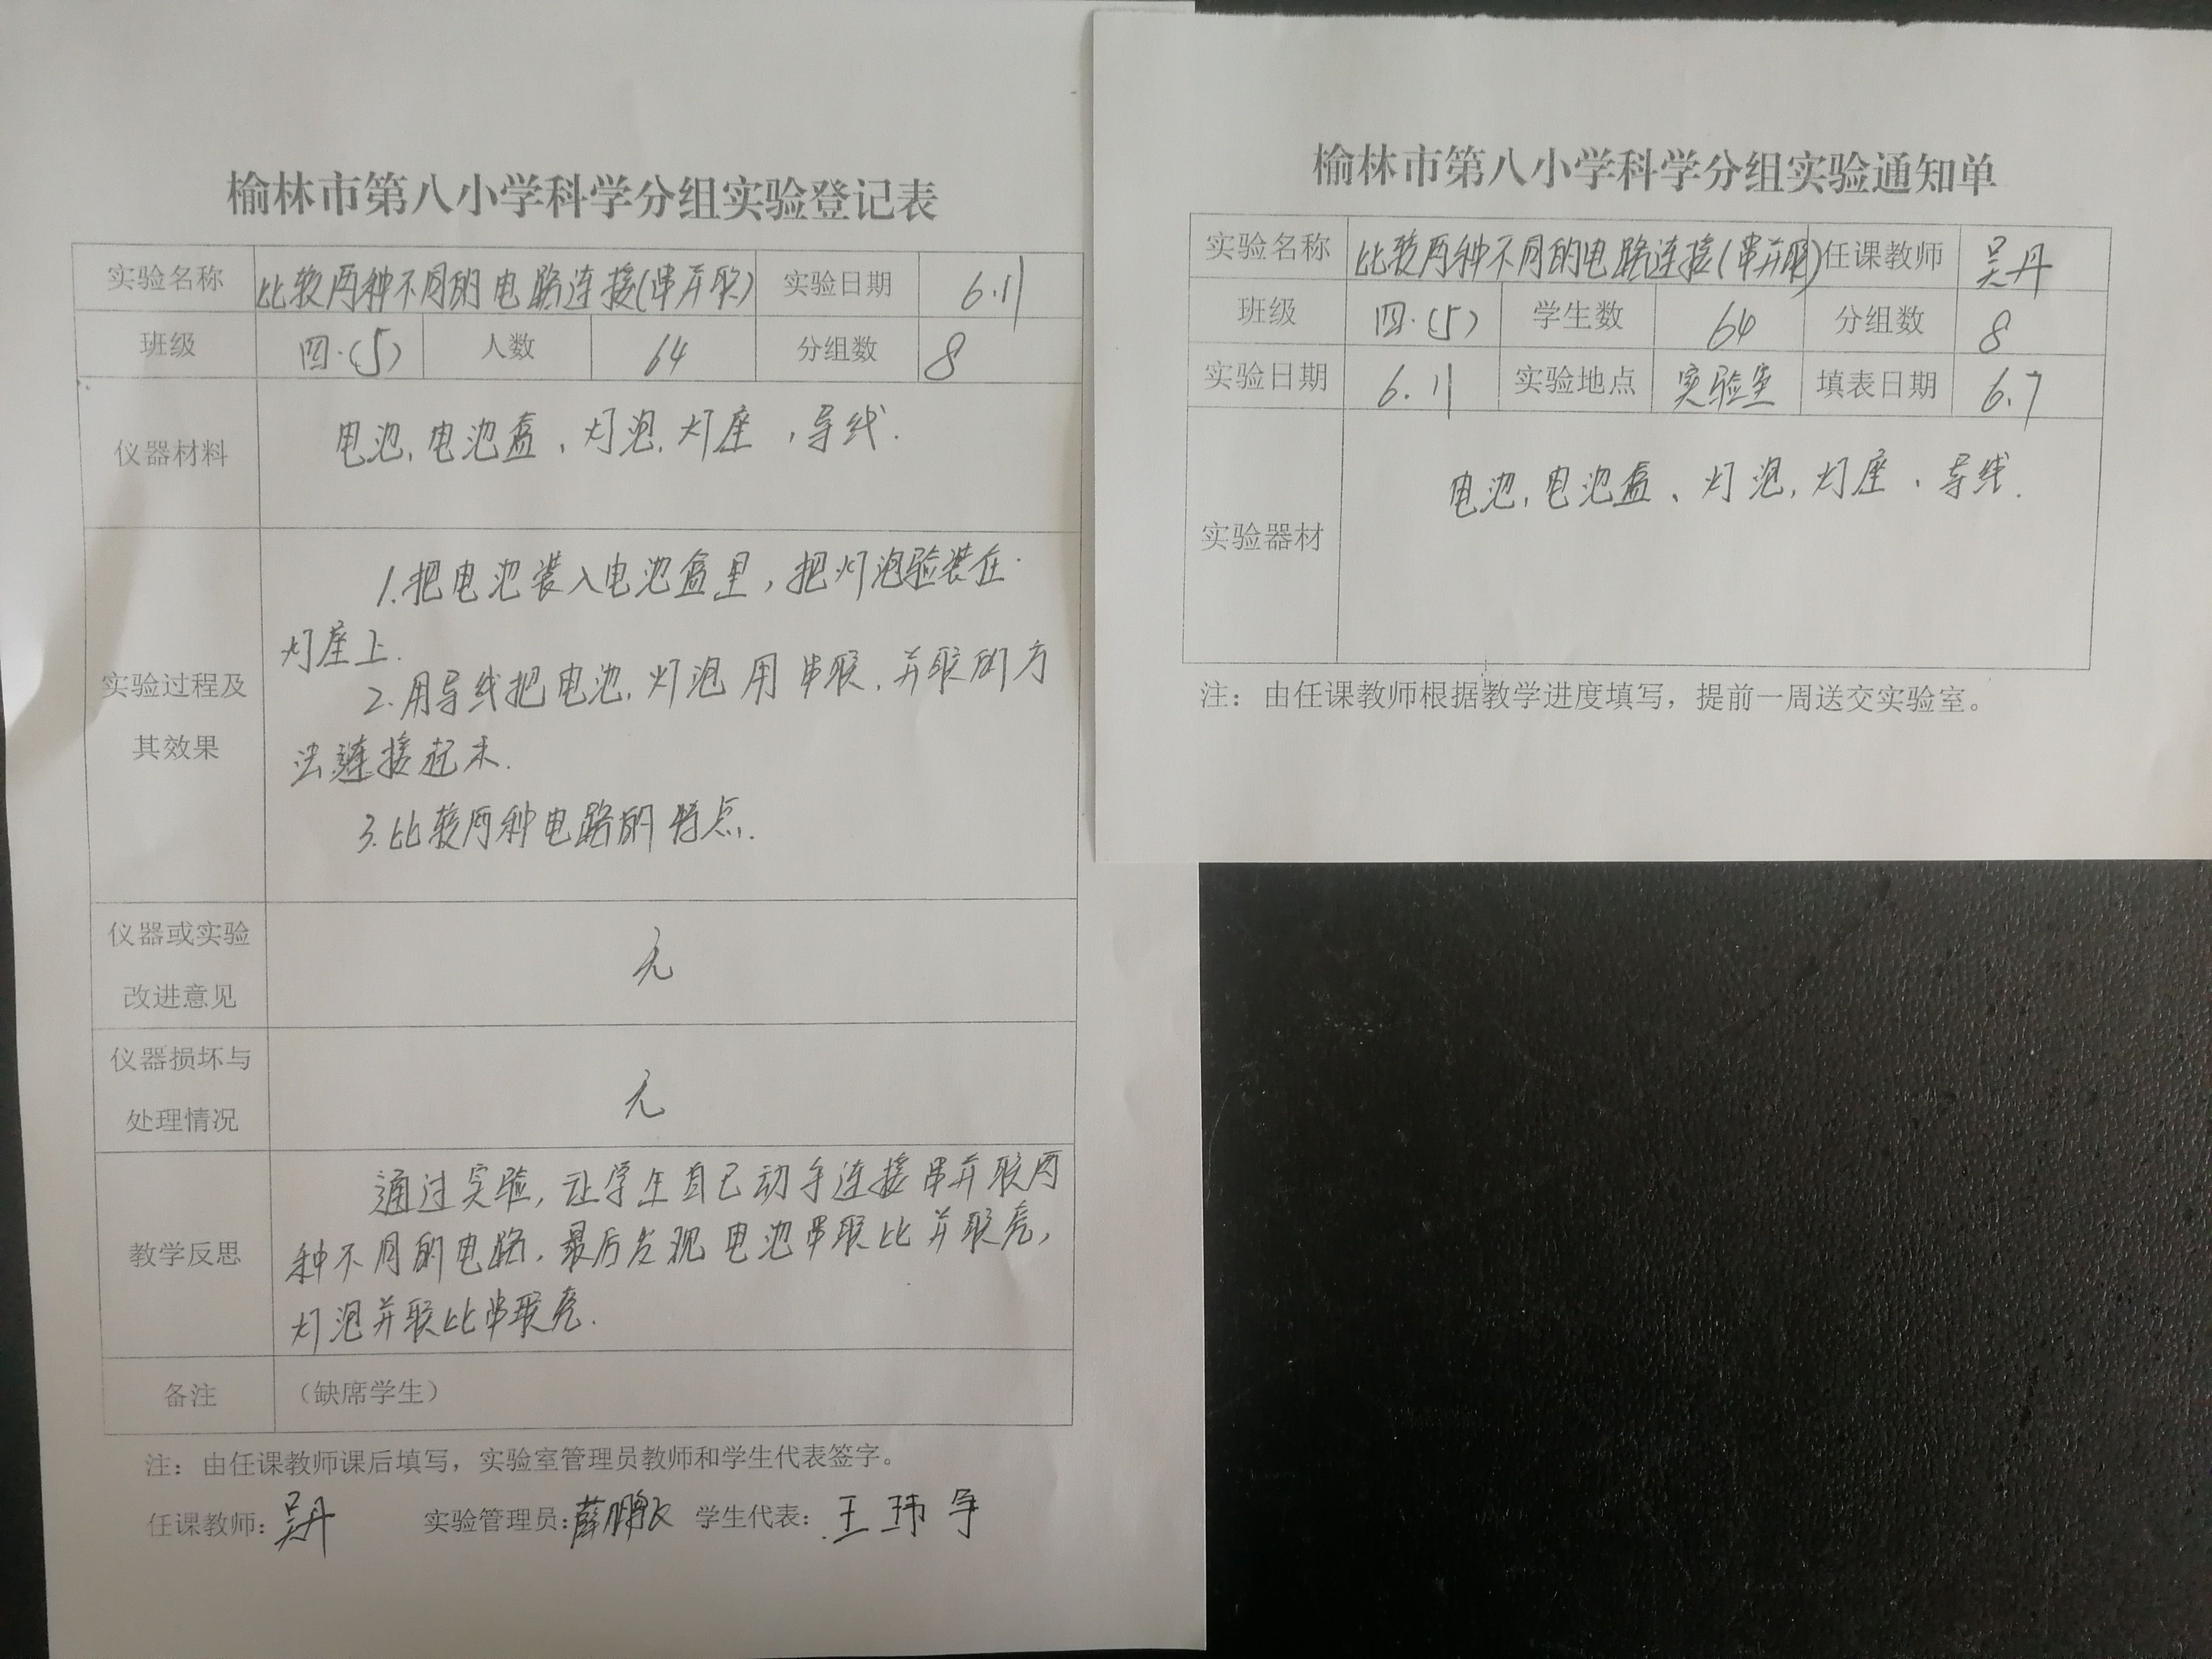 榆林市第八小学科学分组实验登记表
实验名称 比较两种不同的电路连接(串并联) 实验日期 6.11
班级 四.(5) 人数 64 分组数 8
仪器材料 电池,电池盒、灯泡,灯座,导线.
实验过程及其效果
1.把电池装入电池盒里,把灯泡验装在
灯座上.
2.用导线把电池,灯泡用串联,并联的方
法连接起来.
3.比较两种电路的特点.
仪器或实验改进意见 无
仪器损坏与处理情况 无
教学反思
通过实验,让学生自己动手连接串并联两
种不同的电路,最后发现电池串联比并联亮,
灯泡并联比串联亮.
备注 (缺席学生)
注:由任课教师课后填写,实验室管理员教师和学生代表签字。
任课教师:吴丹 实验管理员:薛鹏 学生代表:王玮
榆林市第八小学科学分组实验通知单
实验名称 比较两种不同的电路连接(串并联) 任课教师 吴丹
班级 四.(5) 学生数 64 分组数 8
实验日期 6.11 实验地点 实验室 填表日期 6.7
实验器材 电池,电池盒、灯泡,灯座、导线.
注:由任课教师根据教学进度填写,提前一周送交实验室。